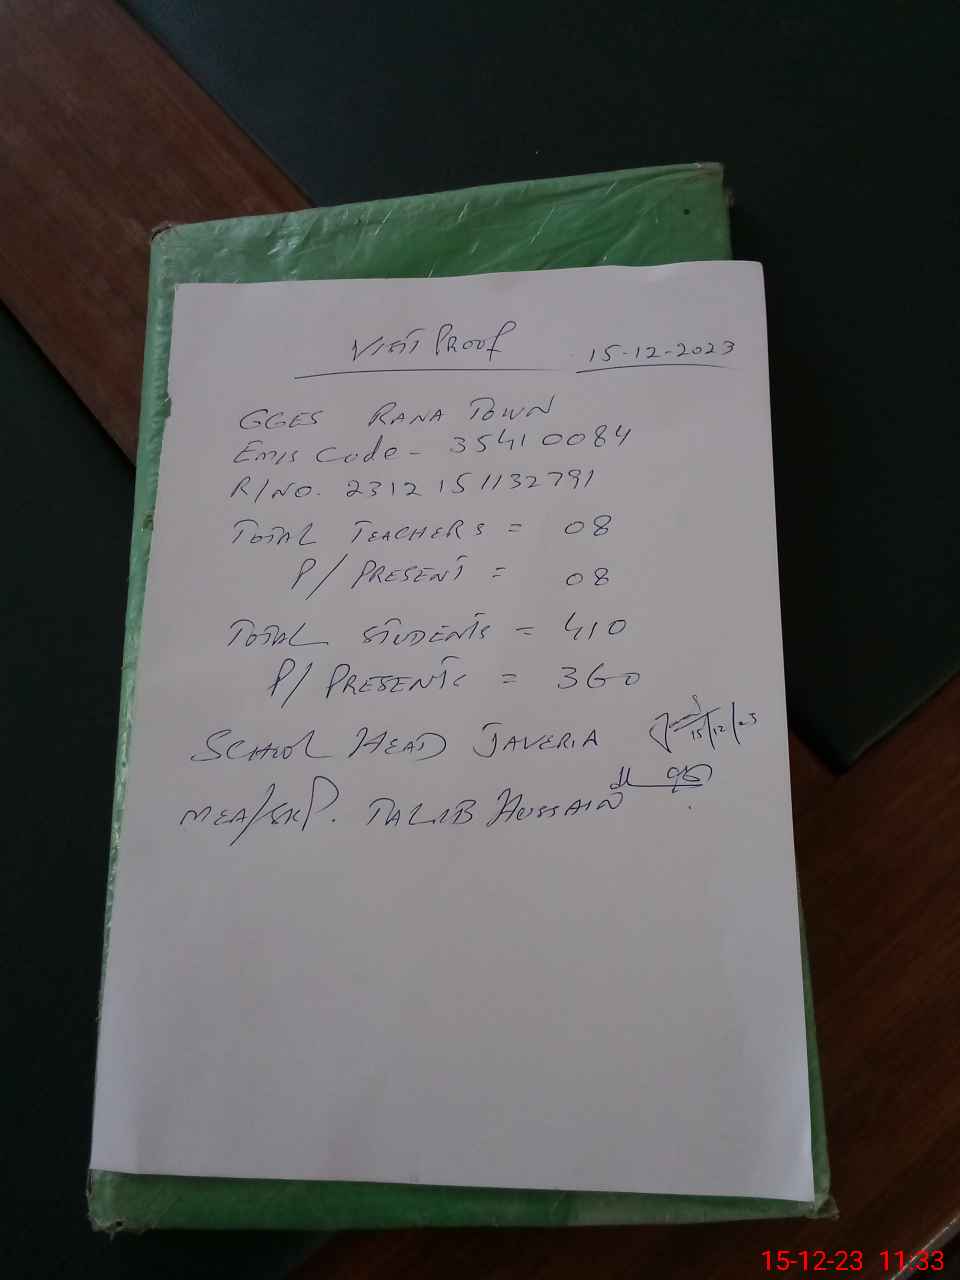 VISIT PROOF 15-12-2023
GGES RANA TOWN
Emis Code - 35410084
R/NO. 2312151132791
TOTAL TEACHERS = 08
P/PRESENT = 08
TOTAL STUDENTS = 410
P/PRESENTS = 360
SCHOOL HEAD JAVERIA 15/12/23
MEA/SKP. TALIB HUSSAIN
15-12-23 11:33